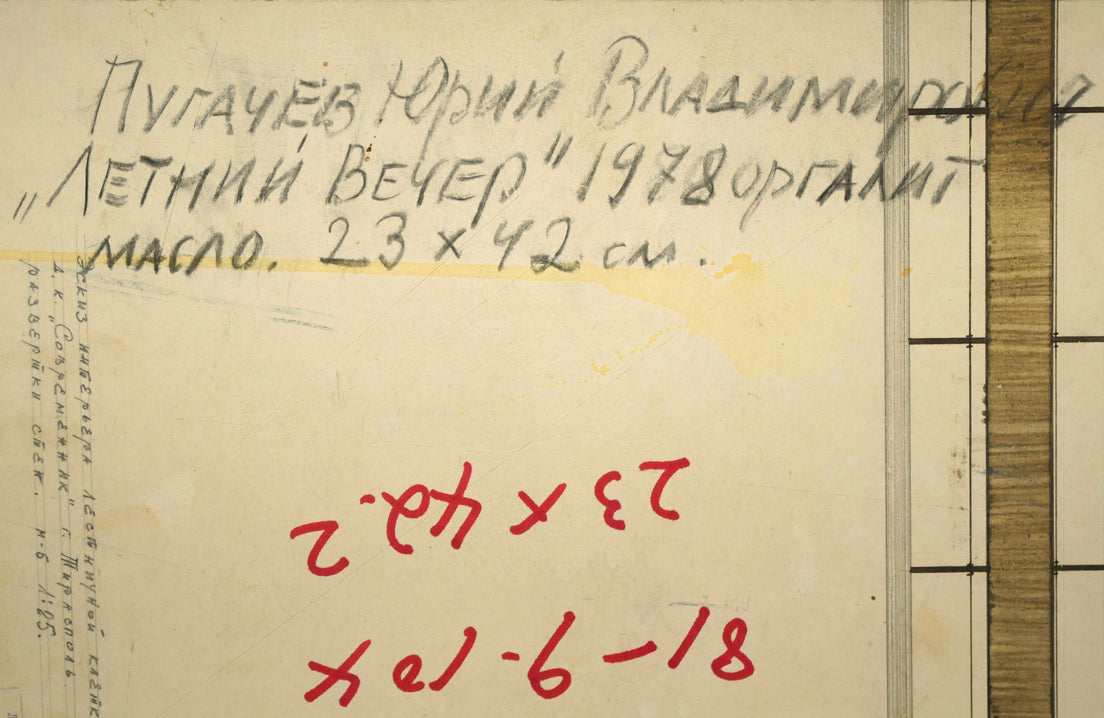 Пугачёв Юрий Владимирович
„Летний Вечер" 1978 оргалит
масло. 23 х 42 см.
Эскиз интерьера лестничной клетк
д.к. „Современник" г. Тирасполь.
развертки стен. м-б 1:25.
23 x 42.2